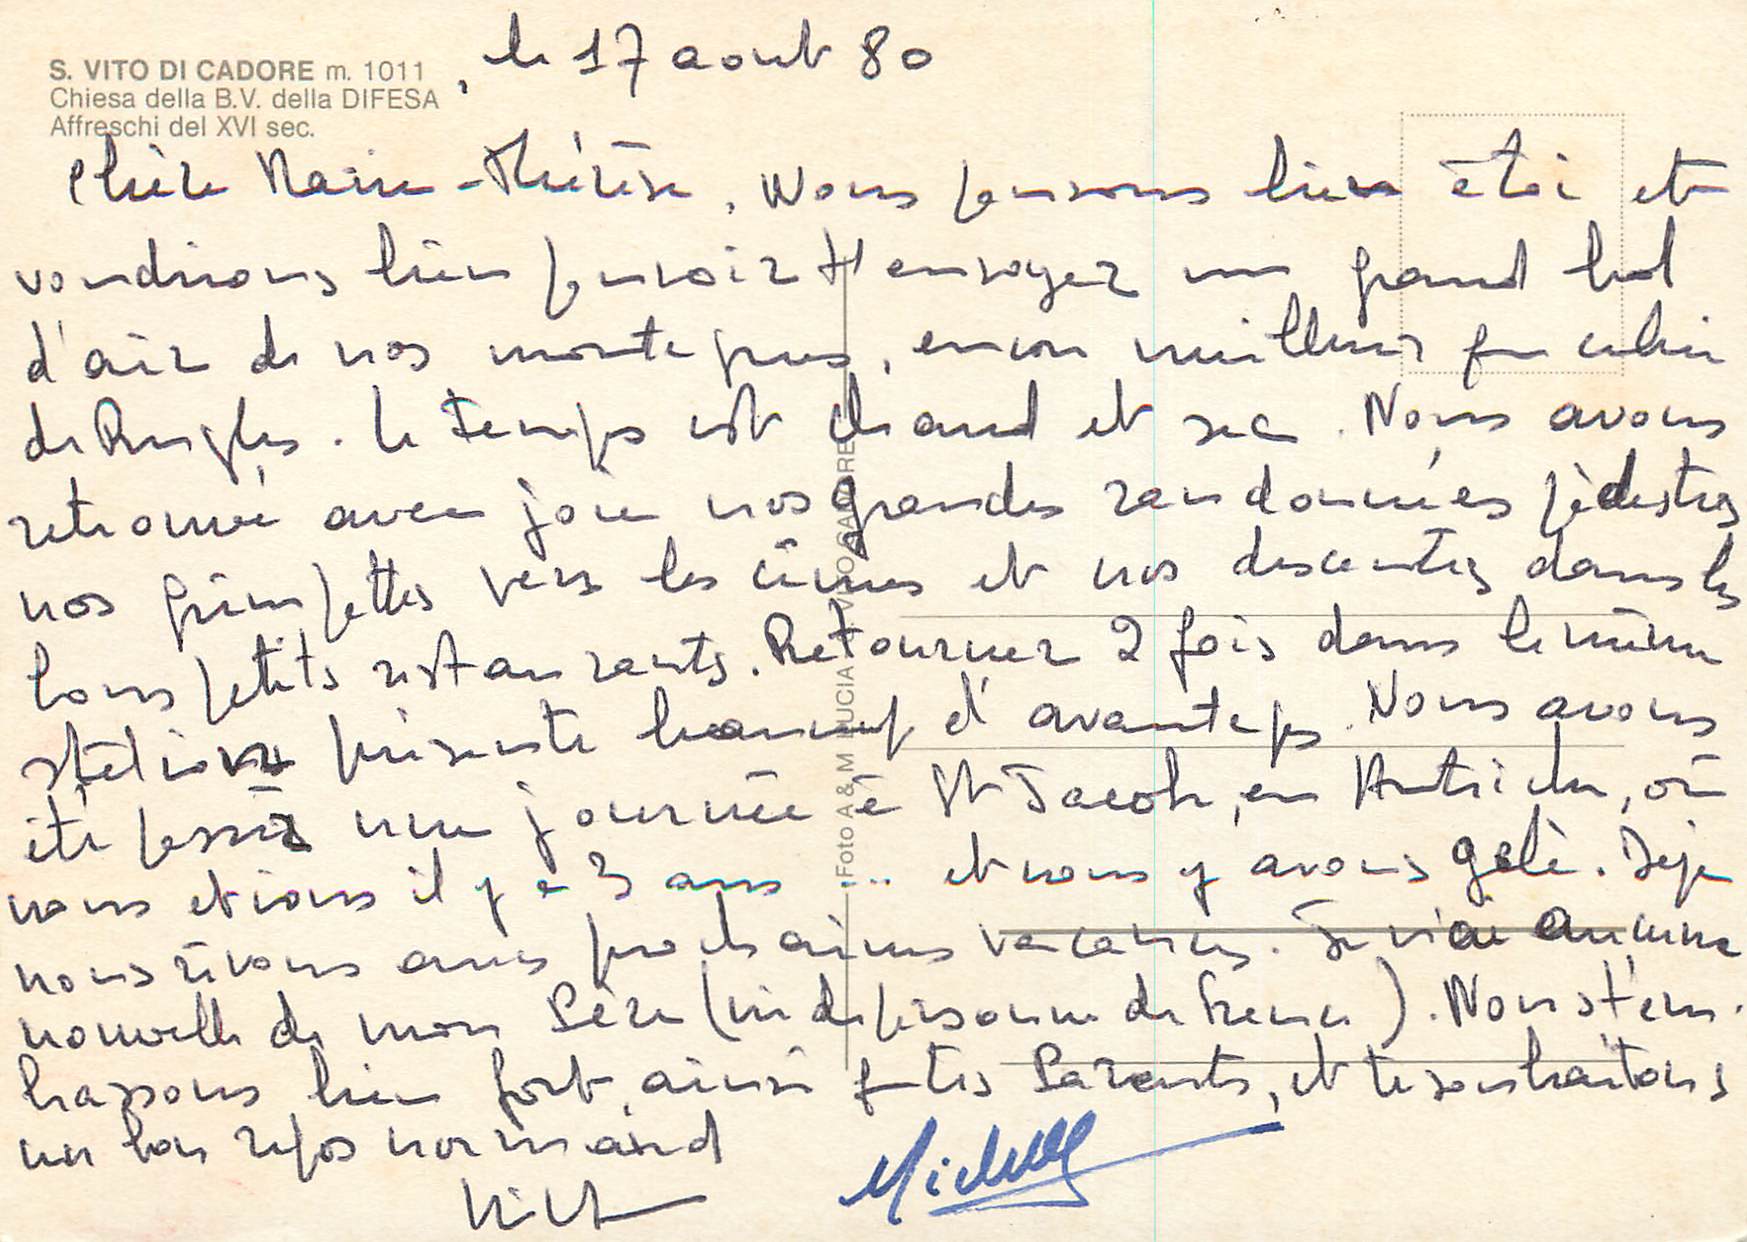 S. VITO DI CADORE m. 1011
Chiesa della B.V. della DIFESA
Affreschi del XVI sec.
, le 17 aout 80
Chère Marie-Thérèse, Nous pensons bien à toi et
voudrions bien pouvoir t'envoyer un grand bol
d'air de nos montagnes, encore meilleur que celui
de Rugles. Le temps est chaud et sec. Nous avons
retrouvé avec joie nos grandes randonnées pédestres
nos grimpettes vers les cîmes et nos descentes dans les
bons petits restaurants. Retourner 2 fois dans le même
station présente beaucoup d'avantages. Nous avons
été passer une journée à St Jacob, en Autriche, où
nous étions il y a 3 ans ... et nous y avons gelé. Déjà
nous rêvons aux prochaines vacances. Je n'ai aucune
nouvelle de mon Père (ni de personne de France). Nous t'em-
brassons bien fort, ainsi que tes Parents, et te souhaitons
un bon repos normand
Michelle
Foto A & M LUCIA VITO CADORE